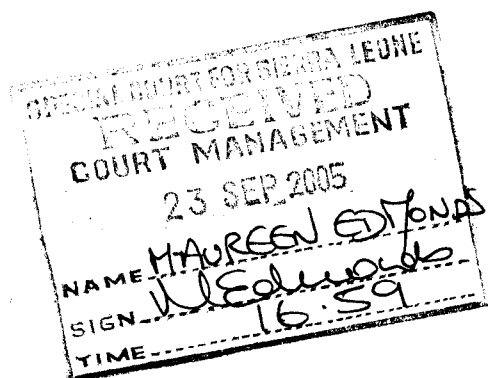 SPECIAL COURT FOR SIERRA LEONE
RECEIVED
COURT MANAGEMENT
23 SEP 2005
NAME MAUREEN EDMONDS
SIGN MEdmonds
TIME 16.59